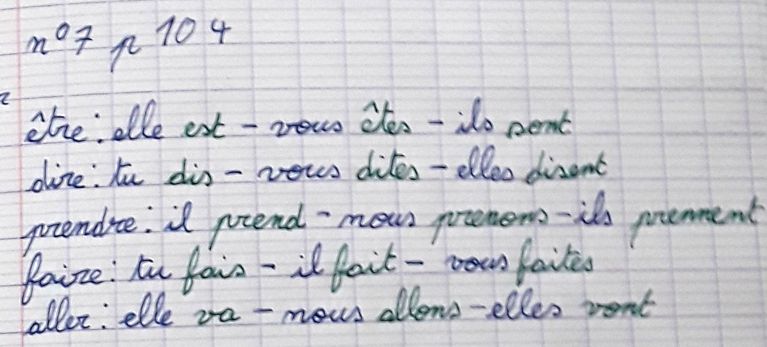 n° 7 p 104
être : elle est - vous êtes - ils sont
dire : tu dis - vous dites - elles disent
prendre : il prend - nous prenons - ils prennent
faire : tu fais - il fait - vous faites
aller : elle va - nous allons - elles vont